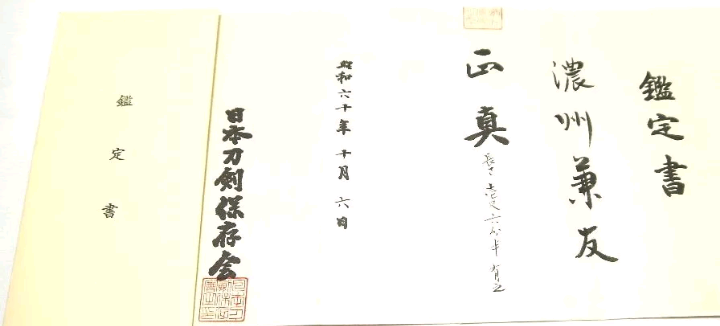 鑑定書
濃州兼友
正真
長さ 壱尺六分半有之
昭和六十年十月六日
日本刀剣保存会
鑑定書